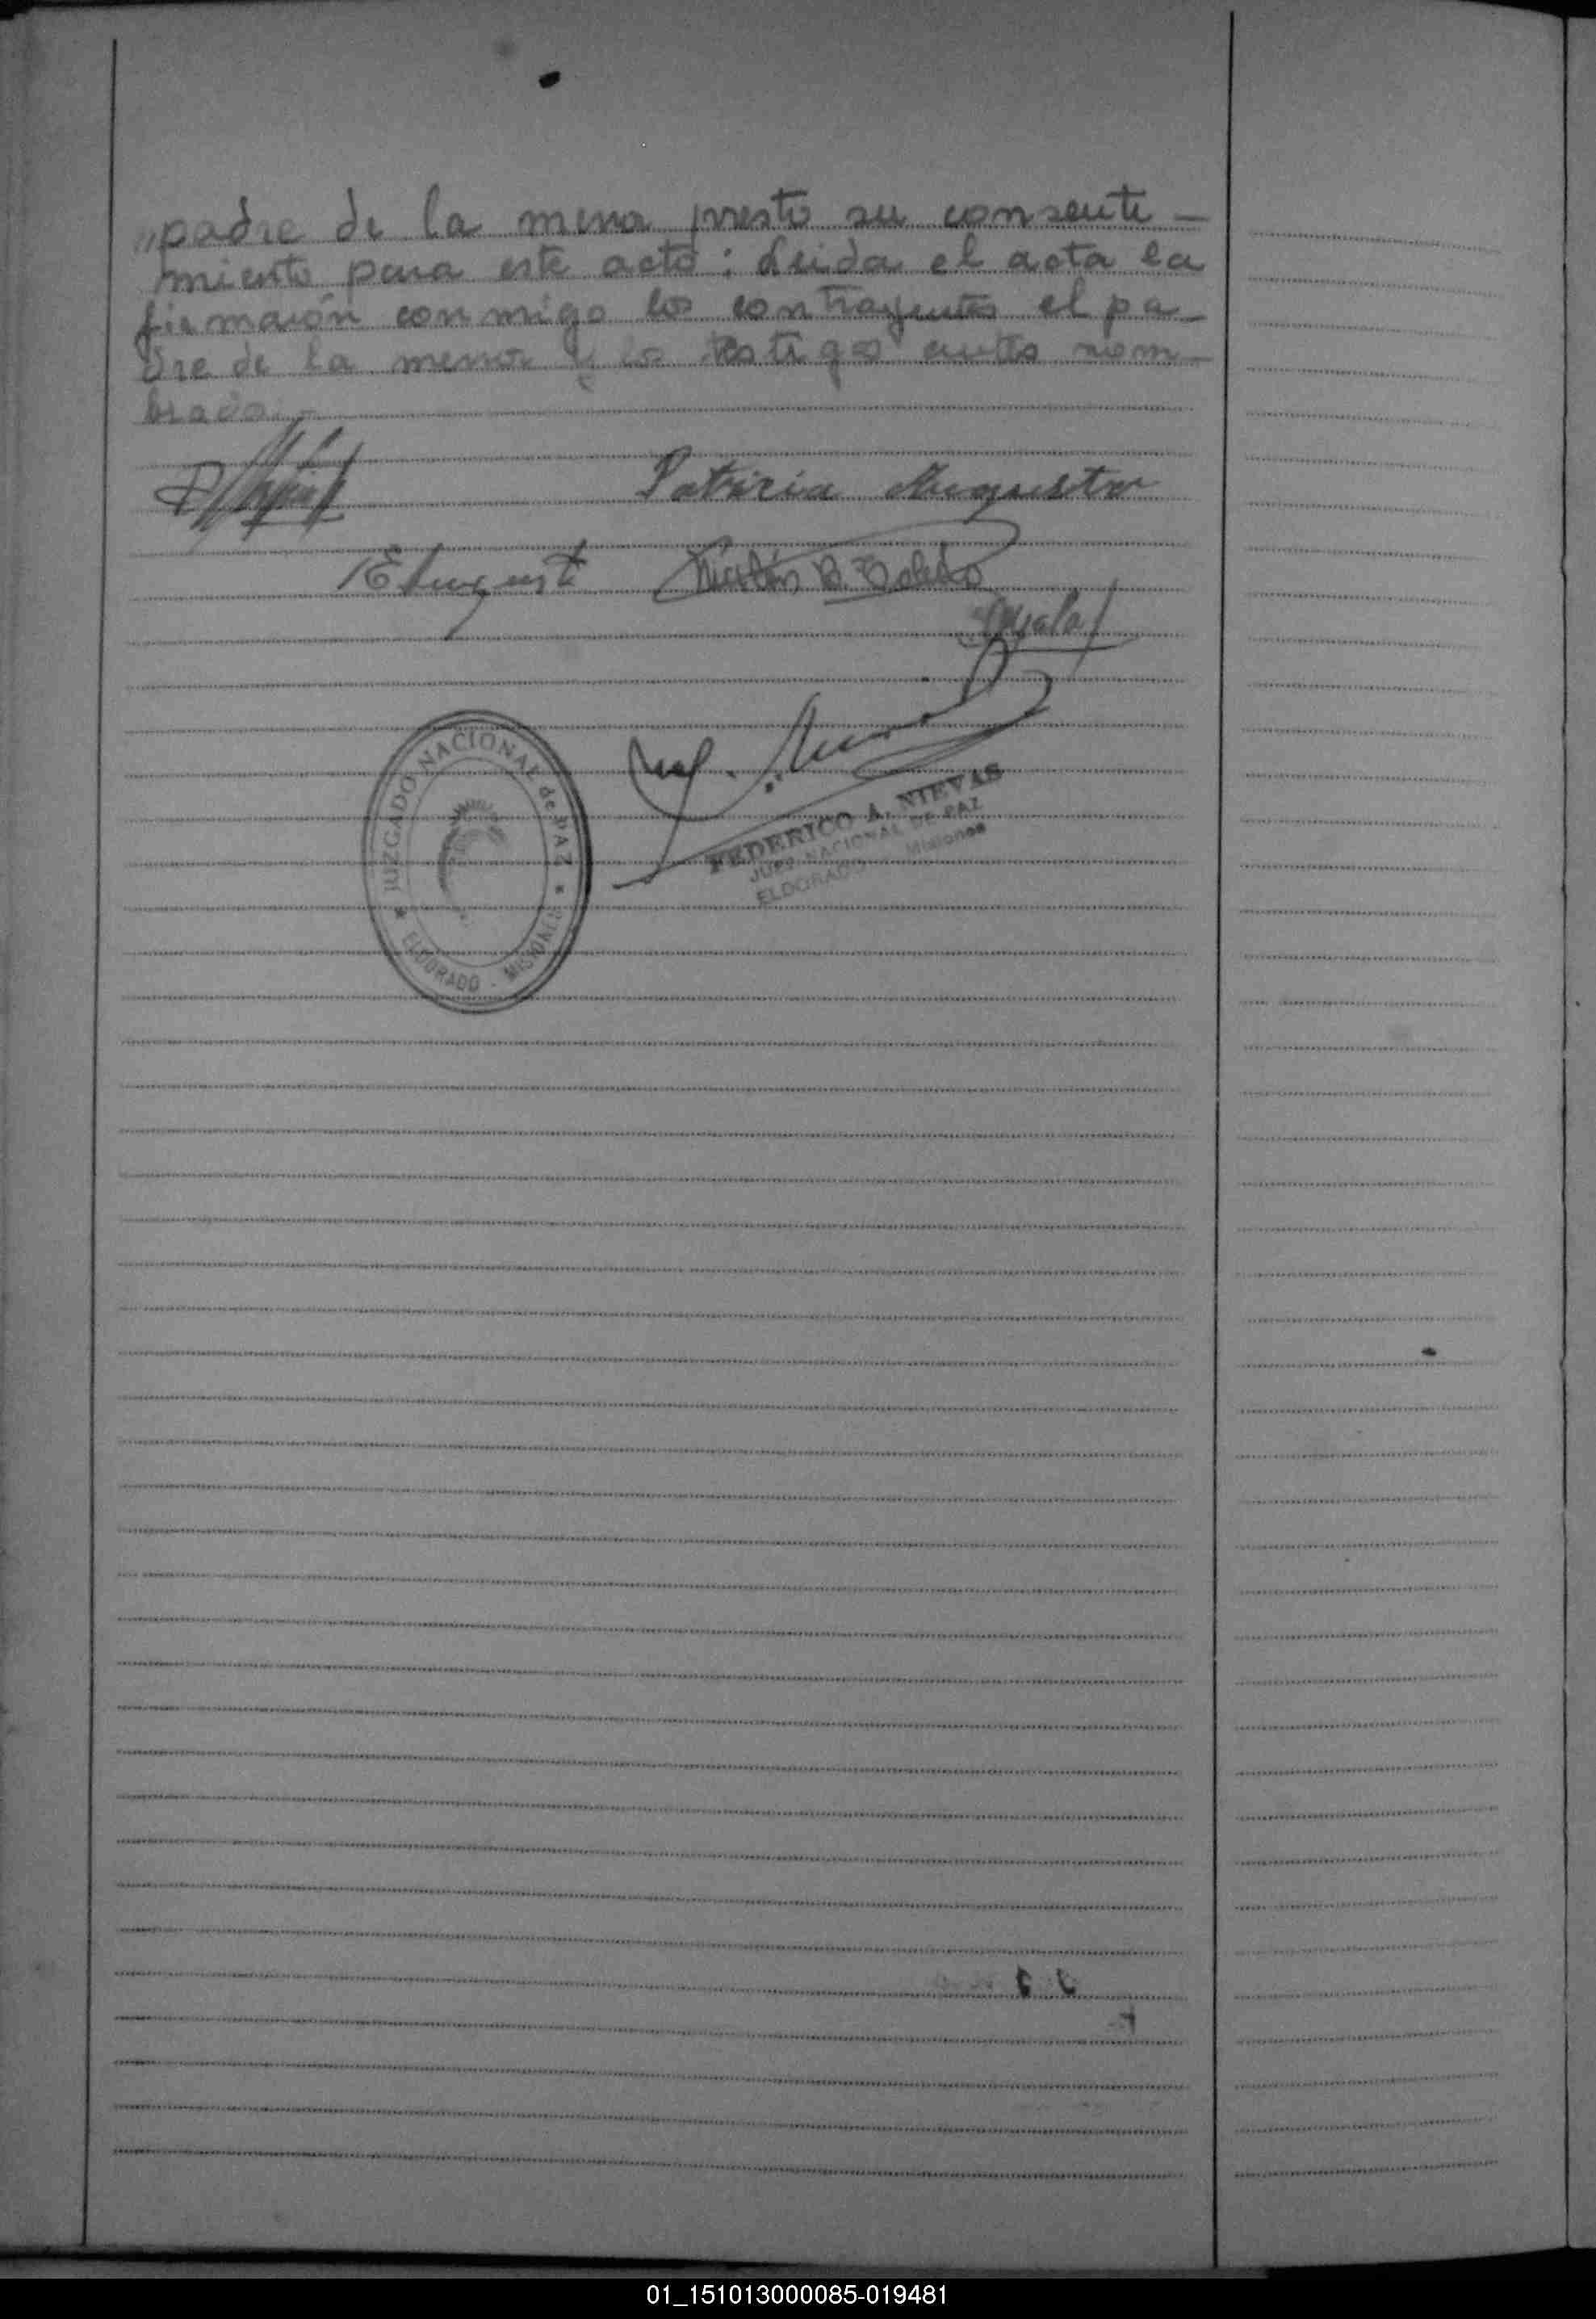 padre de la menor presto su consenti-
miento para este acto; Leida el acta la
firmaron conmigo los contrayentes el pa-
dre de la menor y los testigos antes nom-
brados.-
Patricia Augusta
E Augusta Nicolás B. Toledo
Ayala
FEDERICO A. NIEVAS
JUEZ NACIONAL DE PAZ
ELDORADO Misiones
JUZGADO NACIONAL de PAZ
ELDORADO - MISIONES
01_151013000085-019481